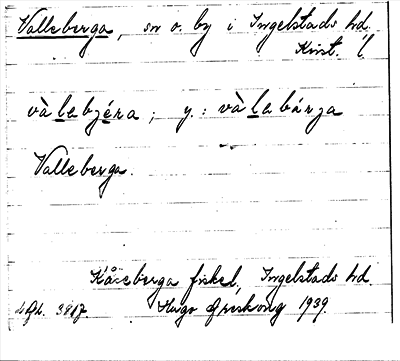 Valleberga, sn o. by i Ingelstads hd.
Krist. l.
vàlabjéra; y.: vàlabárja
Valleberga.
Kåseberga fiskel, Ingelstads hd.
Hugo Areskoug 1939.